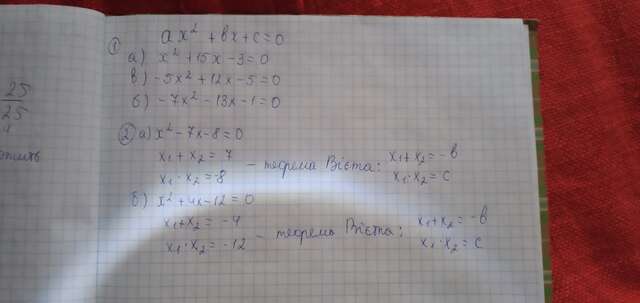 25
25
ч
① ax² + bx + c = 0
а) x² + 15x - 3 = 0
в) -5x² + 12x - 5 = 0
б) -7x² - 13x - 1 = 0
② а) x² - 7x - 8 = 0
x₁ + x₂ = 7
x₁ · x₂ = -8
- теорема Вієта:
x₁ + x₂ = -b
x₁ · x₂ = c
б) x² + 4x - 12 = 0
x₁ + x₂ = -4
x₁ · x₂ = -12
- теорема Вієта:
x₁ + x₂ = -b
x₁ · x₂ = c